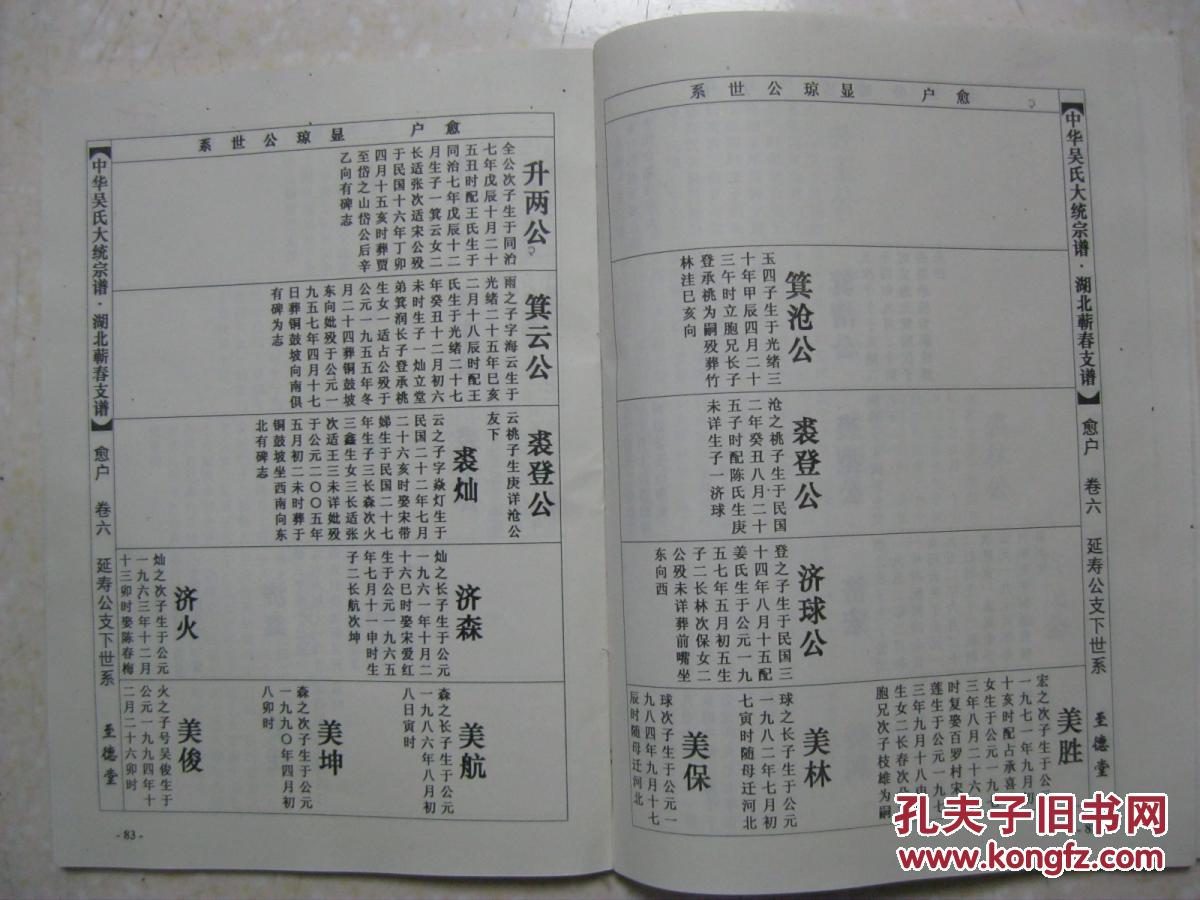 愈户 显琼公世系
【中华吴氏大统宗谱·湖北蕲春支谱】 愈户 卷六 延寿公支下世系 至德堂
箕沧公
玉四子生于光绪三
十年甲辰四月二十
三午时立胞兄长子
登承桃为嗣殁葬竹
林洼巳亥向
裘登公
沧之桃子生于民国
二年癸丑八月二十
五子时配陈氏生庚
未详生子一济球
济球公
登之子生于民国三
十四年八月十五配
姜氏生于公元一九
五七年五月初五生
子二长林次保女二
公殁未详葬前嘴坐
东向西
美胜
宏之次子生于公
一九七一年九月初
十亥时配占承喜
女生于公元一九七
三年八月二十六
时复娶百罗村宋
莲生于公元一九七
三年九月十八
生女二长春次
胞兄次子枝雄为嗣
美林
球之长子生于公元
一九八二年七月初
七寅时随母迁河北
美保
球次子生于公元一
九八四年九月十七
辰时随母迁河北
愈户 显琼公世系
升两公
全公次子生于同治
七年戊辰十月二十
五丑时配王氏生于
同治七年戊辰十二
月生子一箕云女二
长适张次适宋公殁
于民国十六年丁卯
四月十五亥时葬贾
至岱之山岱公后辛
乙向有碑志
箕云公
雨之子字海云生于
光绪二十五年巳亥
二月十八辰时配王
氏生于光绪二十七
年癸丑十二月初六
未时生子一灿立堂
弟箕润长子登承桃
生女一适占公殁于
公元一九五五年冬
月二十四葬铜鼓坡
东向妣殁于公元一
九五七年四月十七
日葬铜鼓坡向南俱
有碑为志
裘登公
云桃子生庚详沧公
友下
裘灿
云之子字焱灯生于
民国二十二年七月
二十六亥时娶宋带
娣生于民国二十七
年生子三长森次火
三鑫生女三长适张
次适王三未详妣殁
于公元二〇〇五年
五月初二未时葬于
铜鼓坡坐西南向东
北有碑志
济森
灿之长子生于公元
一九六一年十月二
十六巳时娶宋爱红
生于公元一九六五
年七月十一申时生
子二长航次坤
济火
灿之次子生于公元
一九六三年十二月
十三卯时娶陈春梅
美航
森之长子生于公元
一九八六年八月初
八日寅时
美坤
森之次子生于公元
一九九〇年四月初
八卯时
美俊
火之子号吴俊生于
公元一九九四年十
二月二十六卯时
【中华吴氏大统宗谱·湖北蕲春支谱】 愈户 卷六 延寿公支下世系 至德堂
- 83 -
孔夫子旧书网
www.kongfz.com